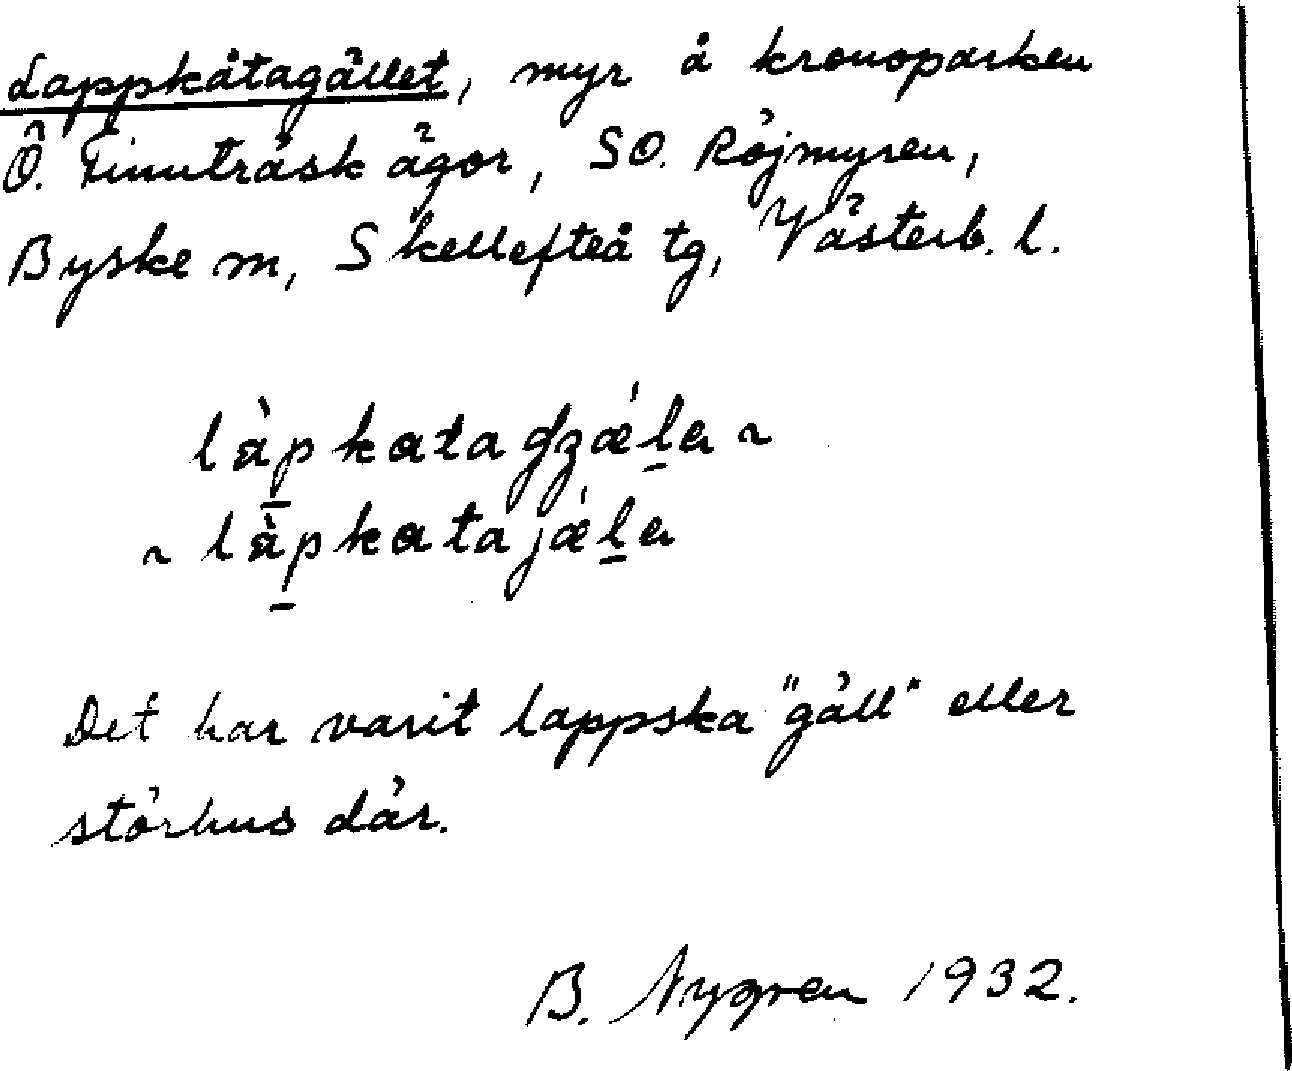 Lappkåtagället, myr å kronoparken
Ö. Finnträsk ägor, SO. Röjmyren,
Byske sn, Skellefteå tg, Västerb. l.
làp̲katagʒǽl̲a ~
~ làp̲katajǽl̲a
Det har varit lappska "gäll" eller
störhus där.
B. Nygren 1932.